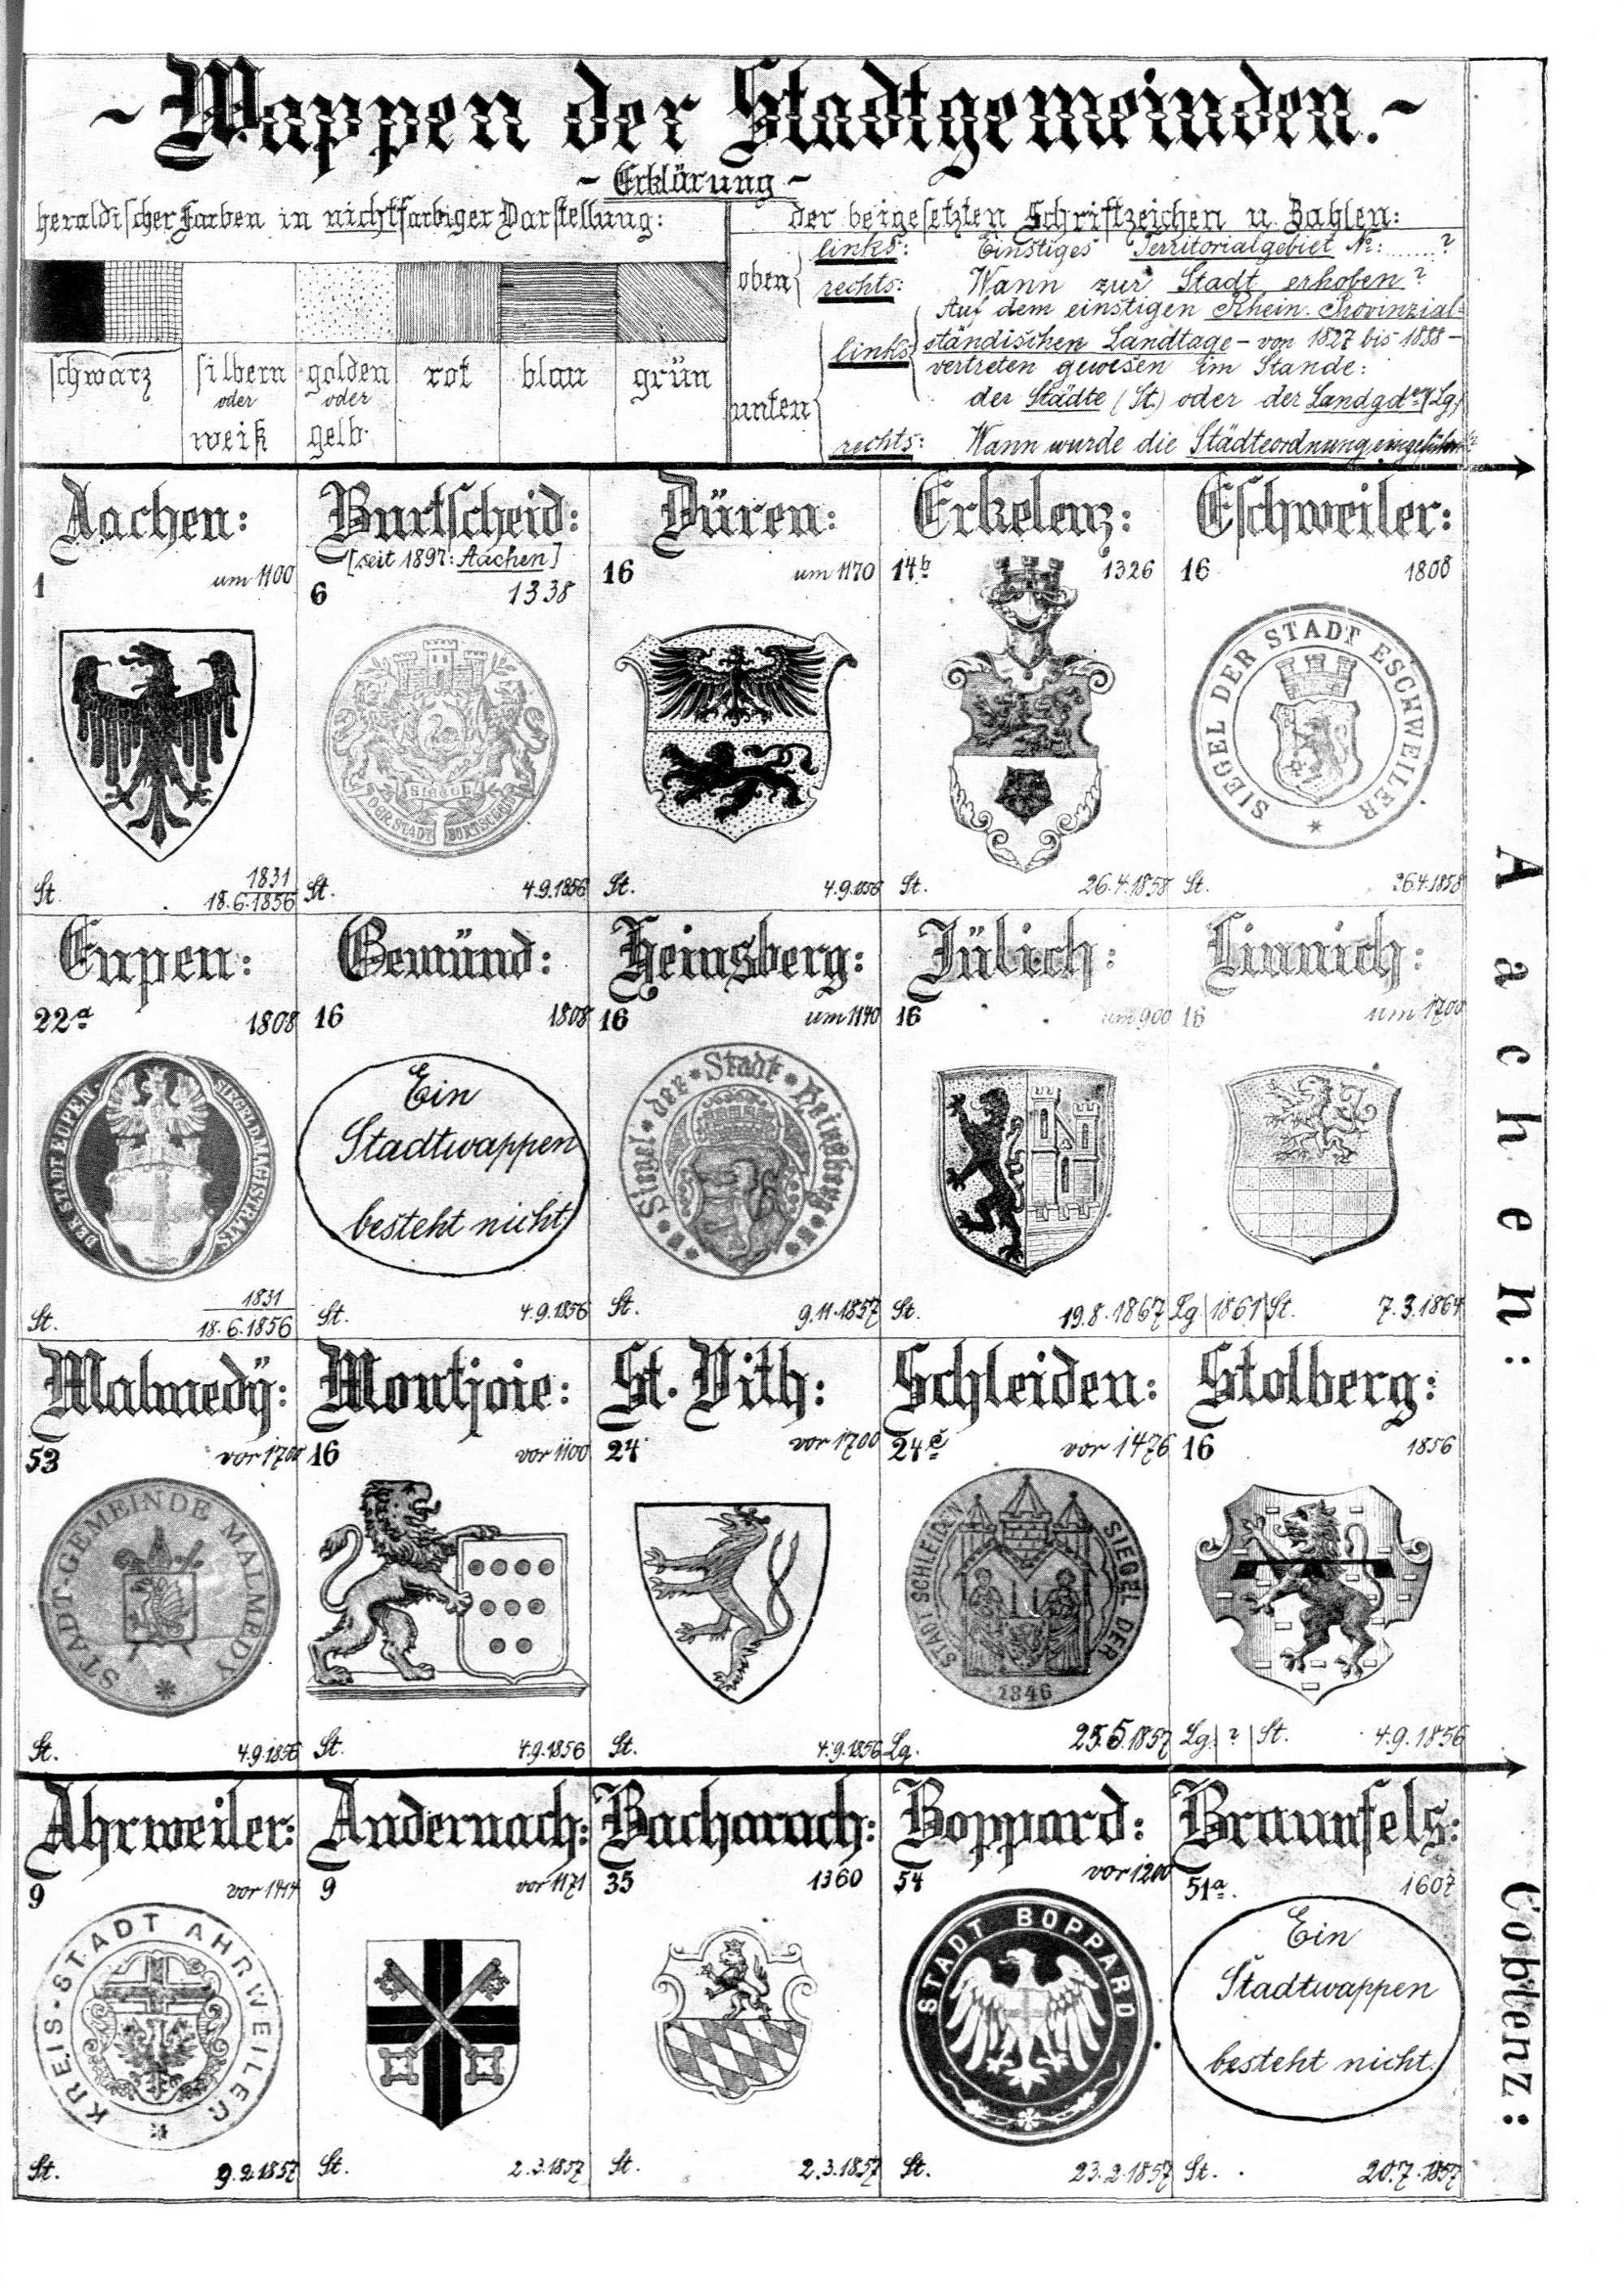 ~ Wappen der Stadtgemeinden. ~
~ Erklärung ~
heraldischer Farben in nichtfarbiger Darstellung:
der beigesetzten Schriftzeichen u. Zahlen:
schwarz
silbern oder weiß
golden oder gelb
rot
blau
grün
oben
links: Einstiges Territorialgebiet №: ........?
rechts: Wann zur Stadt erhoben?
unten
links
Auf dem einstigen Rhein. Provinzial-
ständischen Landtage – von 1827 bis 1888 –
vertreten gewesen im Stande:
der Städte (St.) oder der Landgd. (Lg)
rechts: Wann wurde die Städteordnung eingeführt?
Aachen:
1 um 1100
St. 1831
18.6.1856
Burtscheid:
[seit 1897: Aachen]
6 1338
DER STADT BURTSCHEID
St. 4.9.1856
Düren:
16 um 1170
St. 4.9.1856
Erkelenz:
14b 1326
St. 26.4.1858
Eschweiler:
16 1808
SIEGEL DER STADT ESCHWEILER
St. 26.4.1858
Eupen:
22a 1808
SIEGEL D. MAGISTRATS
DER STADT EUPEN
St. 1831
18.6.1856
Gemünd:
16 1808
Ein
Stadtwappen
besteht nicht
St. 4.9.1856
Heinsberg:
16 um 1140
Siegel der Stadt Heinsberg
St. 9.11.1857
Jülich:
16 um 900
St. 19.8.1867
Linnich:
16 um 1700
Lg | 1861 | St. 7.3.1864
Malmedÿ:
53 vor 1700
STADT-GEMEINDE MALMEDY
St. 4.9.1856
Montjoie:
16 vor 1100
St. 4.9.1856
St. Vith:
24 vor 1700
St. 4.9.1856
Schleiden:
24e vor 1476
SIEGEL DER STADT SCHLEIDEN
1846
Lg. 25.5.1857
Stolberg:
16 1856
Lg. | ? | St. 4.9.1856
Aachen:
Ahrweiler:
9 vor 1414
KREIS-STADT AHRWEILER
St. 9.2.1857
Andernach:
9 vor 1171
St. 2.3.1857
Bacharach:
35 1360
St. 2.3.1857
Boppard:
54 vor 1200
STADT BOPPARD
St. 23.2.1857
Braunfels:
51a. 1607
Ein
Stadtwappen
besteht nicht.
St. 20.7.1857
Coblenz: